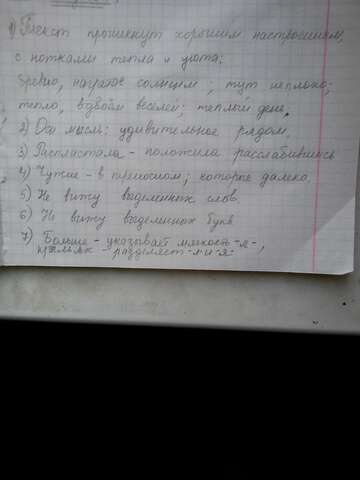 1) Текст проникнут хорошим настроением,
с нотками тепла и уюта:
бревно, нагретое солнцем, тут неплохо;
тепло, вдвоём веселей; теплый день.
2) Осн мысль: удивительное рядом.
3) Распластала - положила расслабившись
4) Чужие - в переносном; которые далеко.
5) Не вижу выделенных слов.
6) Не вижу выделенных букв
7) Больше - указывает мягкость -л-,
- разделяет -л- и -я-